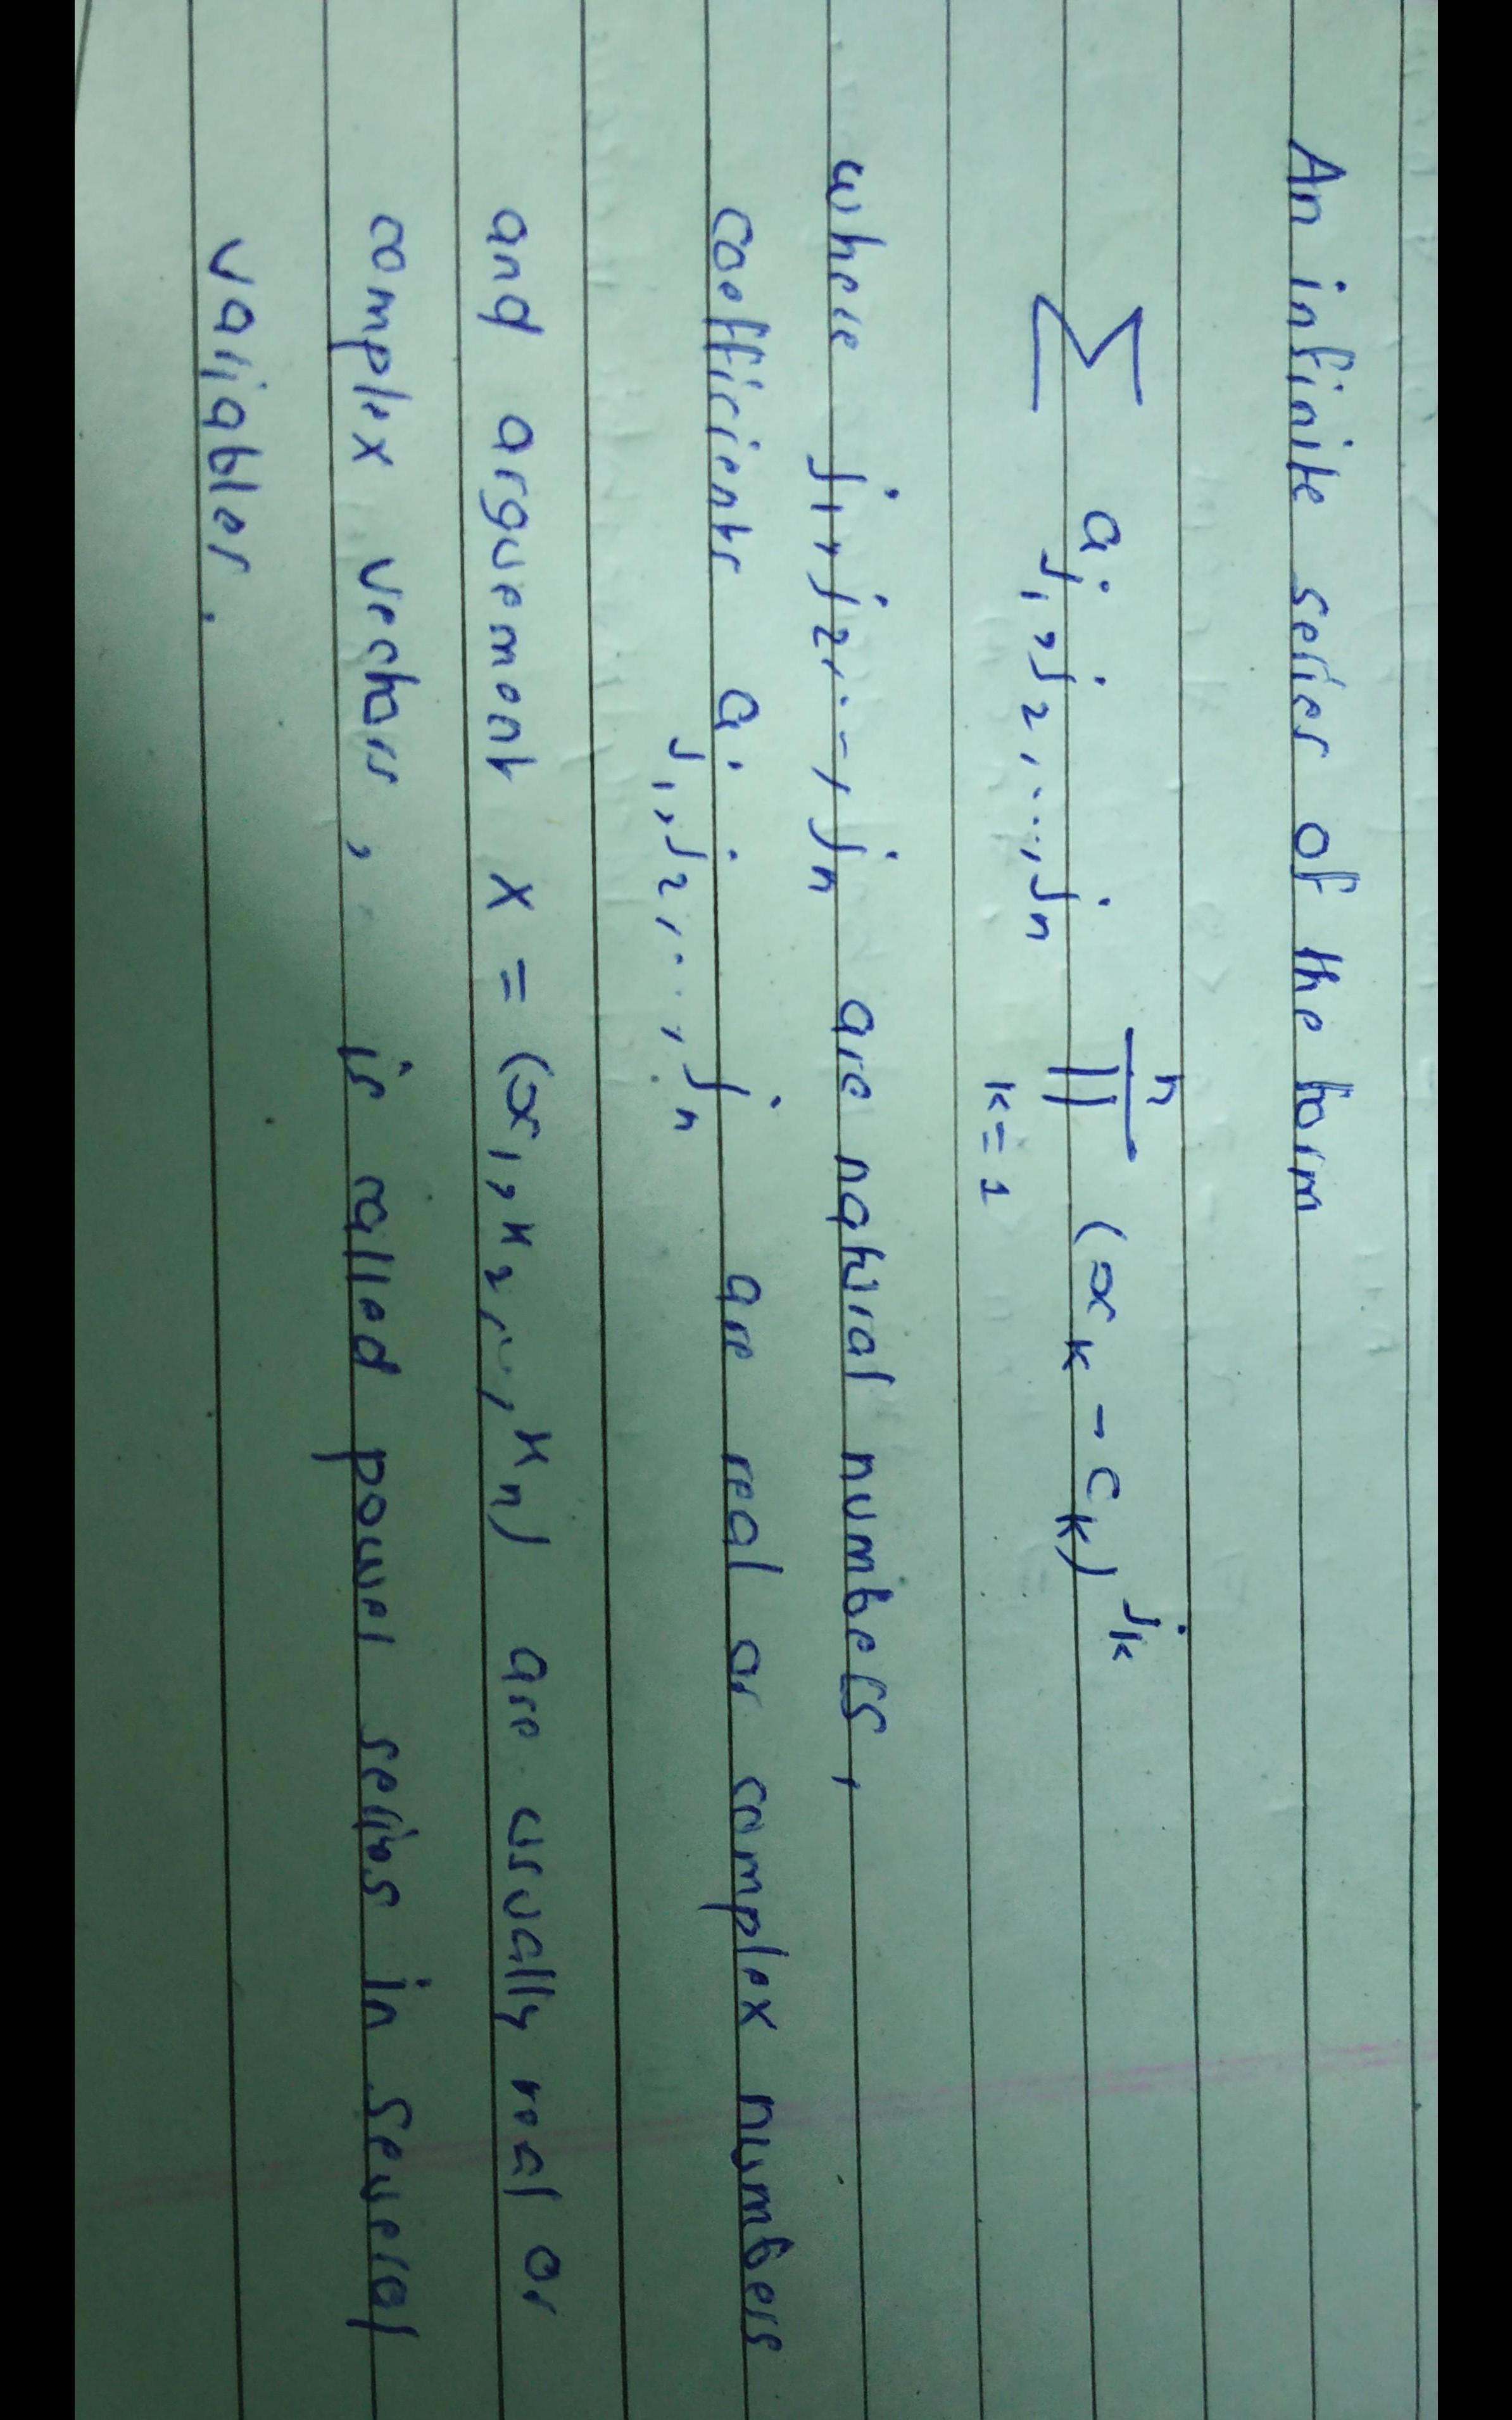 An infinite series of the form
∑ a_{j₁, j₂, ..., jₙ} ∏_{k=1}^{n} (x_k - c_k)^{j_k}
where j₁, j₂, ..., jₙ are natural numbers,
coefficients a_{j₁, j₂, ..., jₙ} are real or complex numbers
and arguement x = (x₁, x₂, ..., xₙ) are usually real or
complex vectors, is called power series in several
variables.